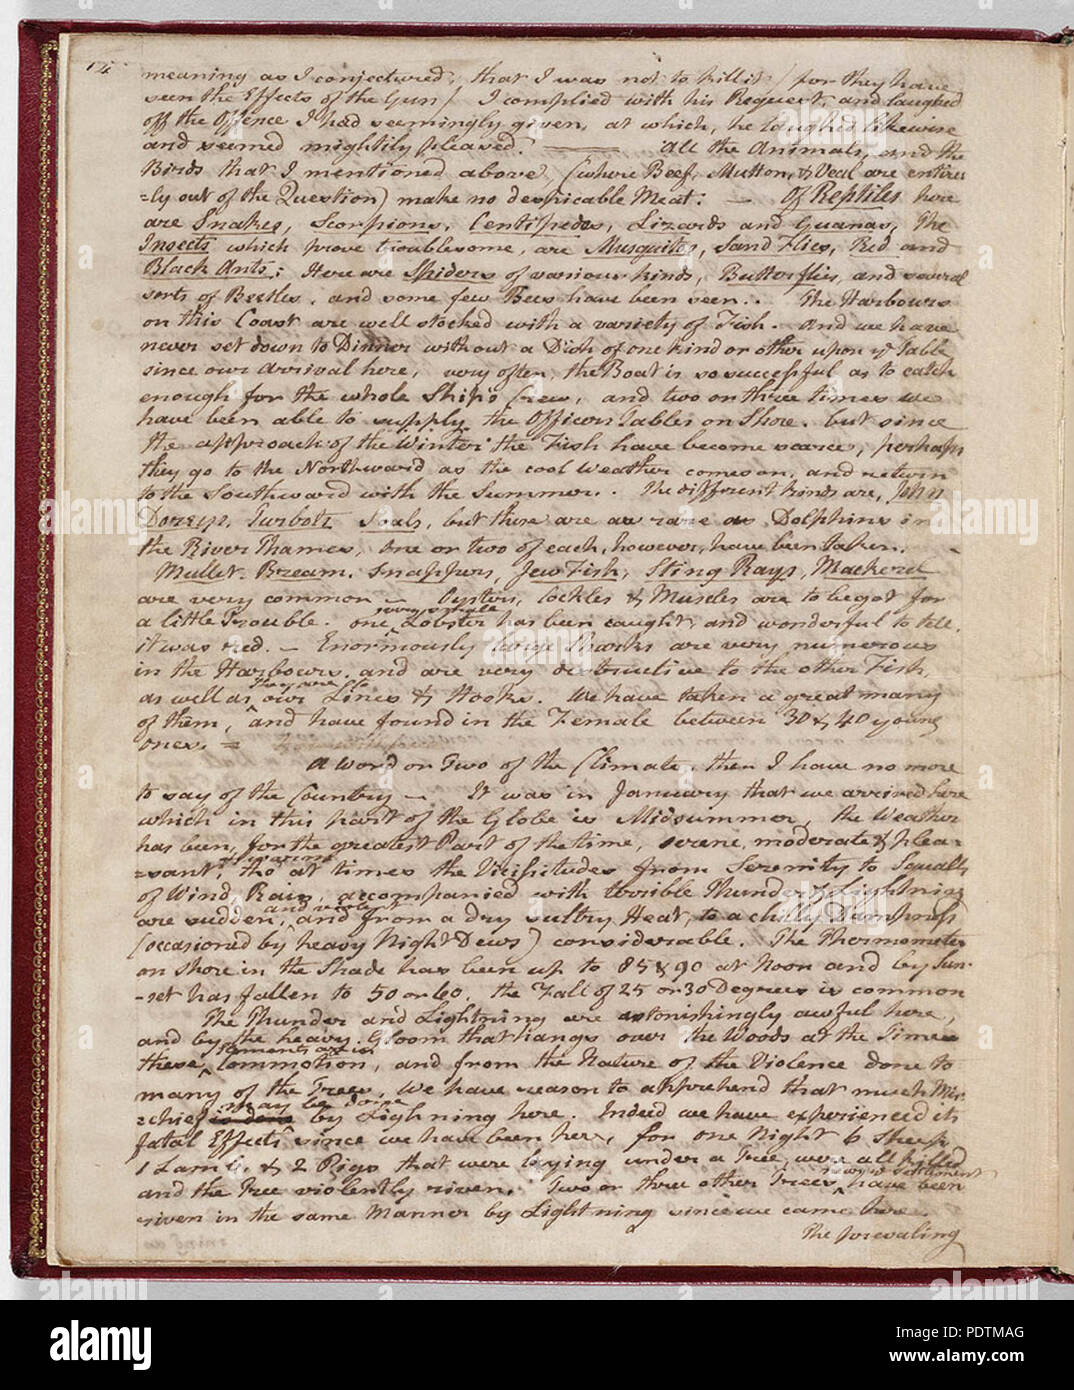 14
meaning as I conjectured, that I was not to kill it / for they have
seen the Effects of the Gun / I complied with his Request, and laughed
off the Offence I had seemingly given, at which, he laughed likewise
and seemed mightily pleased. — all the Animals, and the
Birds that I mentioned above, (where Beef, Mutton, & Veal are entire
=ly out of the Question) make no despicable Meat: — Of Reptiles here
are Snakes, Scorpions, Centipedes, Lizards and Guanas, The
Insects which prove troublesome, are Musquitos, Sand Flies, Red and
Black Ants: Here are Spiders of various kinds, Butterflies, and several
sorts of Beetles, and some few Bees have been seen.. The Harbours
on this Coast are well stocked with a variety of Fish. And we have
never set down to Dinner without a Dish of one kind or other upon ye Table
since our arrival here, very often, the Boat is so successful as to catch
enough for the whole Ship's Crew, and two or three times we
have been able to supply the Officers Tables on Shore. but since
the approach of the Winter the Fish have become scarce, perhaps
they go to the Northward as the cool Weather comes on, and return
to the Southward with the Summer. The different kinds are, John
Doreys, Turbots Soals, but these are as rare as Dolphins in
the River Thames, one or two of each, however, have been taken.
Mullet. Bream. Snappers, Jew Fish, Sting Rays, Mackerel
are very common — Oysters, Cockles & Muscles are to be got for
a little Trouble. one very small Lobster has been caught, and wonderful to tell,
it was red. — Enormously large Sharks are very numerous
in the Harbours, and are very destructive to the other Fish,
as well as they are to our Lines & Hooks. We have taken a great many
of them, and have found in the Female between 30 & 40 young
ones. =
A word or Two of the Climate, then I have no more
to say of the Country — It was in January that we arrived here
which in this part of the Globe is Midsummer, the Weather
has been, for the greatest Part of the time, serene, moderate & plea=
=sant, tho' at times the Vicissitudes from Serenity to Squalls
of Wind, Rain, accompanied with terrible Thunder & Lightning
are sudden and violent, and from a dry sultry Heat, to a chilly Dampness
(occasioned by heavy Night Dews) considerable. The Thermometer
on shore in the Shade has been up to 85 & 90 at Noon and by Sun-
-set has fallen to 50 or 60, the Fall of 25 or 30 Degrees is common
The Thunder and Lightning are astonishingly awful here,
and by the heavy Gloom that hangs over the Woods at the Time
these Elements are in Commotion, and from the Nature of the Violence done to
many of the Trees, We have reason to apprehend that much Mis=
=chief is done may be done by Lightning here. Indeed we have experienced its
fatal Effects since we have been here, for one Night 6 Sheep
1 Lamb, & 2 Pigs that were laying under a Tree, were all killed
and the Tree violently riven. Two or three other Trees near ye Settlement have been
riven in the same Manner by Lightning since we came here.
The prevailing
alamy
Image ID: PDTMAG
www.alamy.com